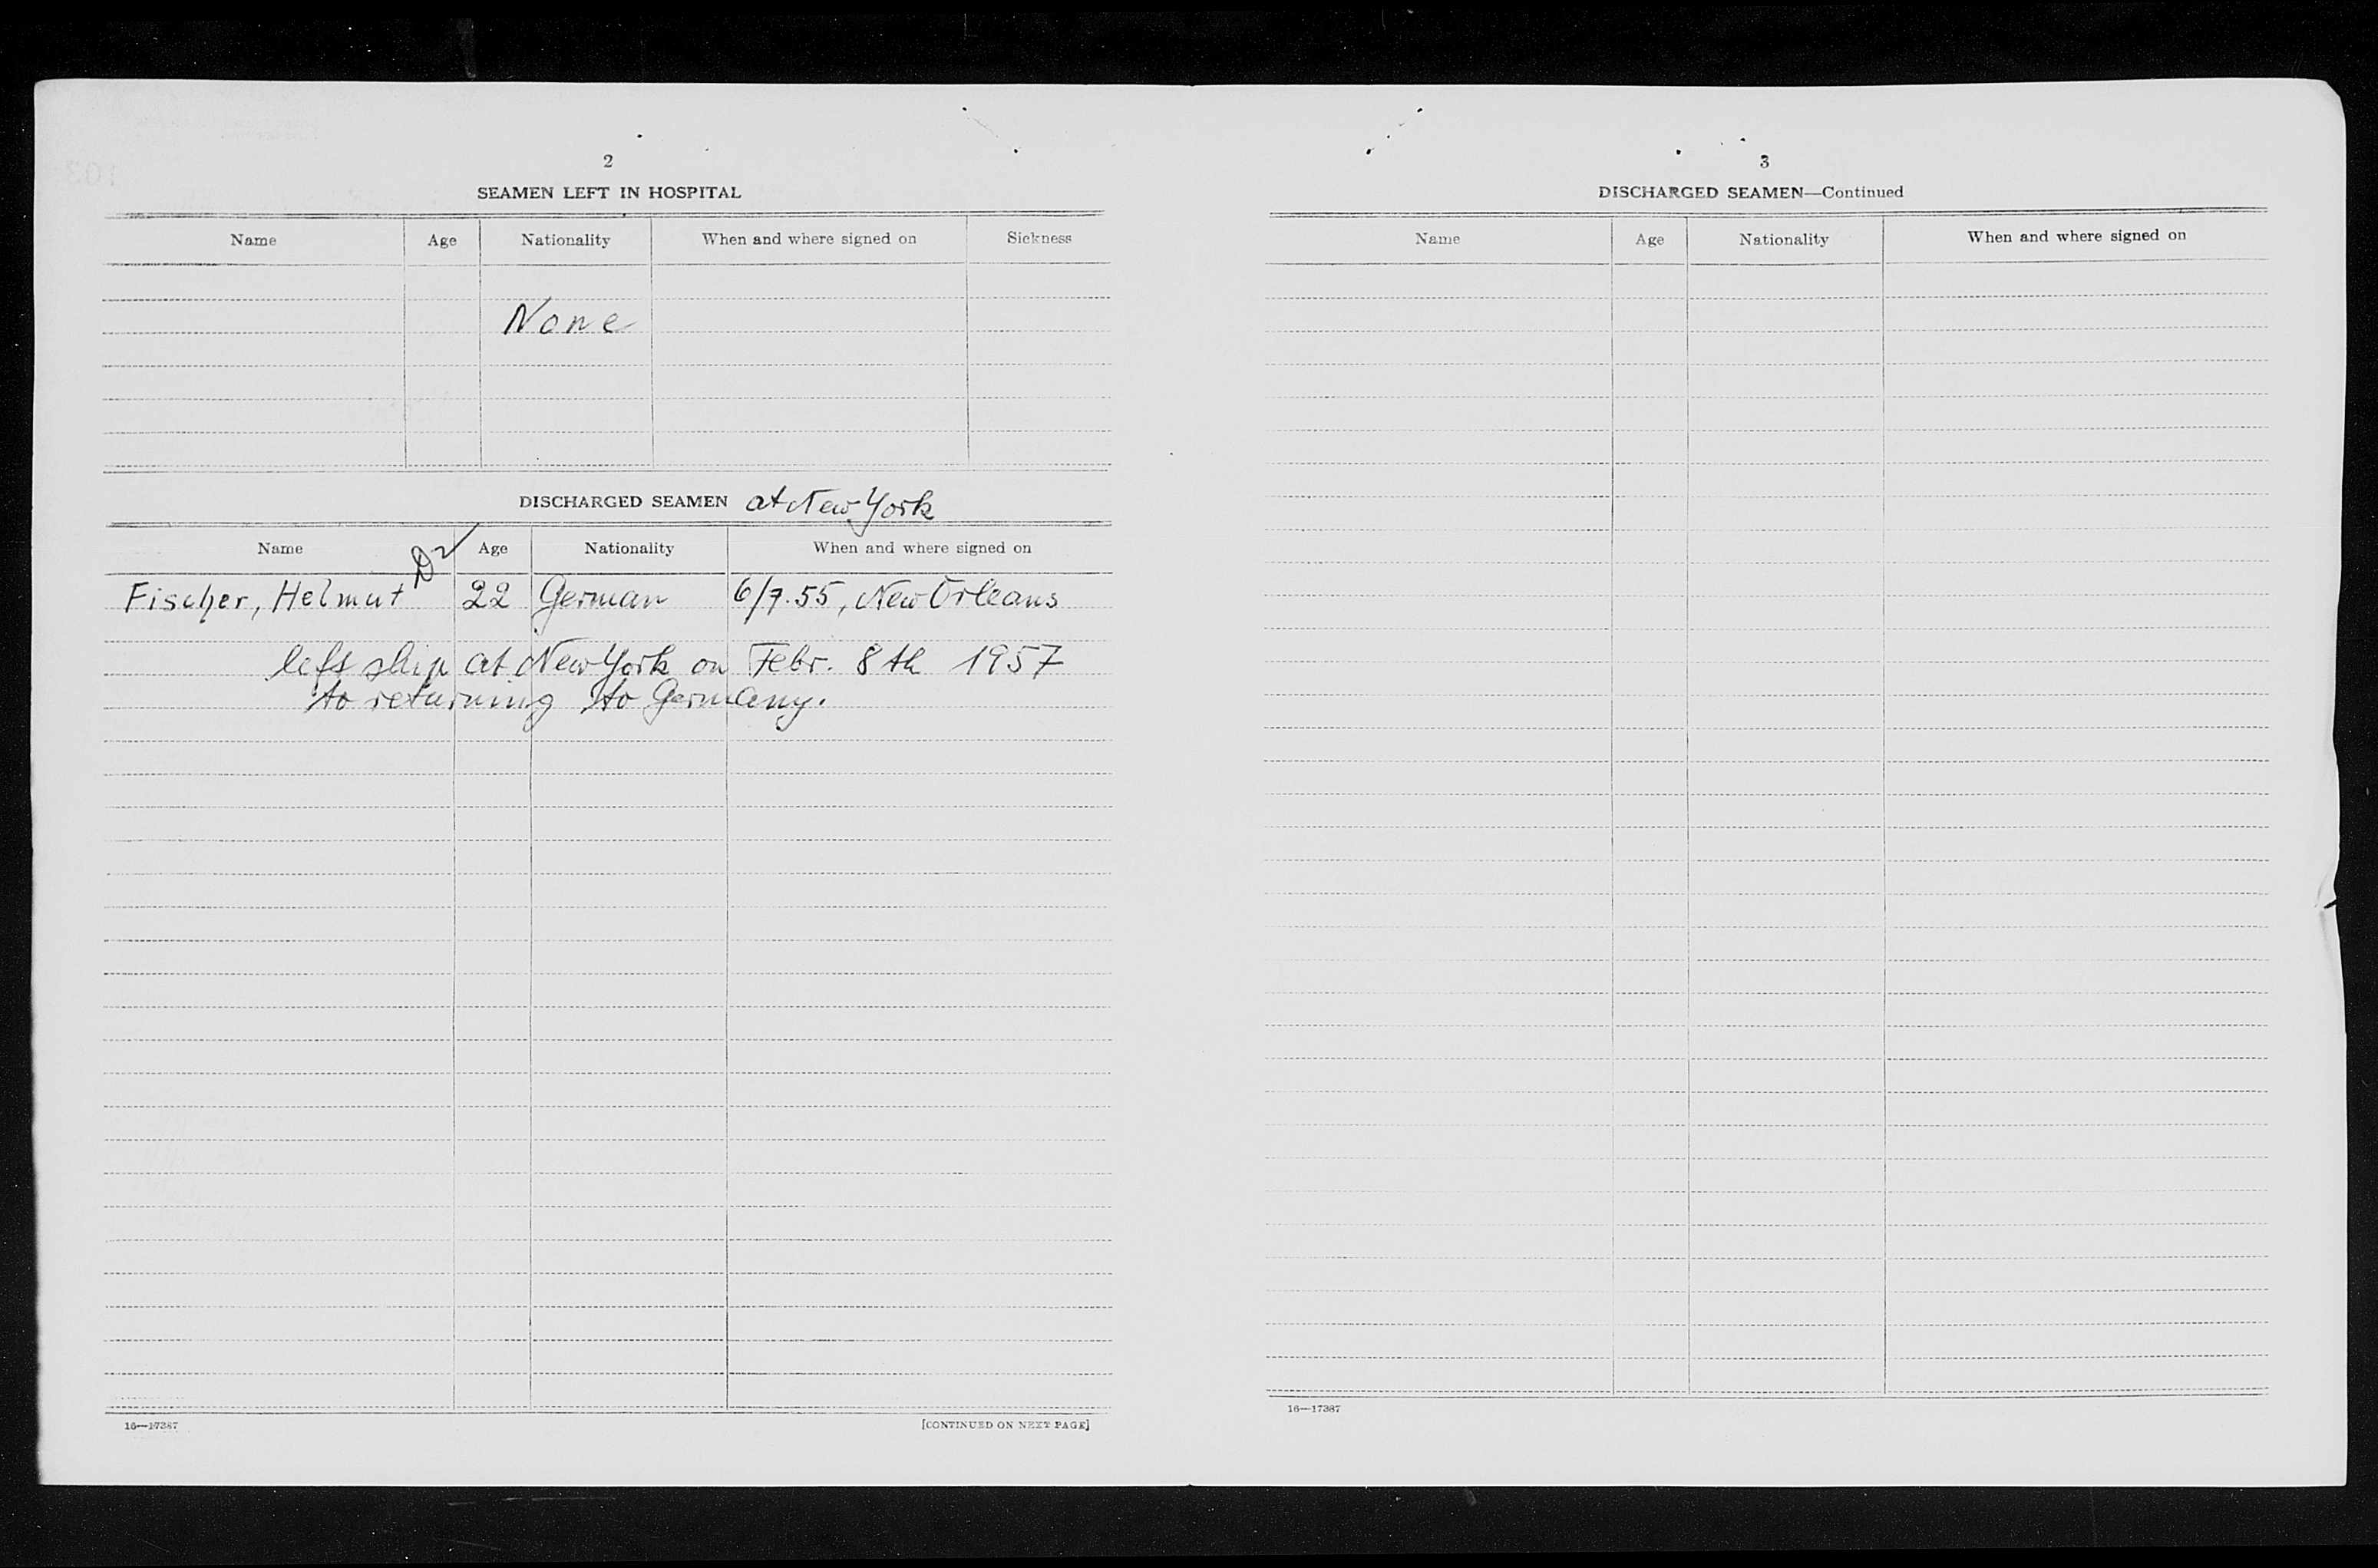 2
SEAMEN LEFT IN HOSPITAL
Name Age Nationality When and where signed on Sickness
None
DISCHARGED SEAMEN at New York
Name Age Nationality When and where signed on
Fischer, Helmut 22 German 6/7.55, New Orleans
left ship at New York on Febr. 8th 1957
to returning to Germany.
16—17387
[CONTINUED ON NEXT PAGE]
3
DISCHARGED SEAMEN—Continued
Name Age Nationality When and where signed on
16—17387